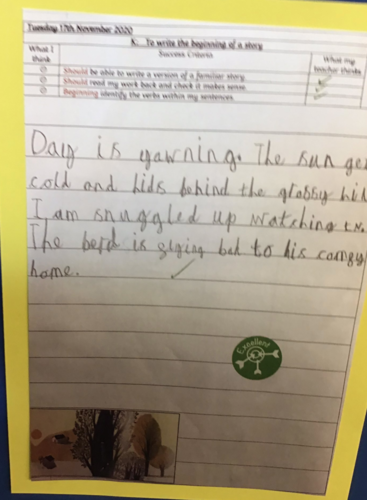 Tuesday 17th November 2020
K: To write the beginning of a story
What I think
Success Criteria
What my teacher thinks
Should be able to write a version of a familiar story.
Should read my work back and check it makes sense.
Beginning identify the verbs within my sentences.
Day is yawning. The sun ge
cold and hids behind the grassy hil
I am snuggled up watching
The berd is giging bak to his compy
home.
Excellent